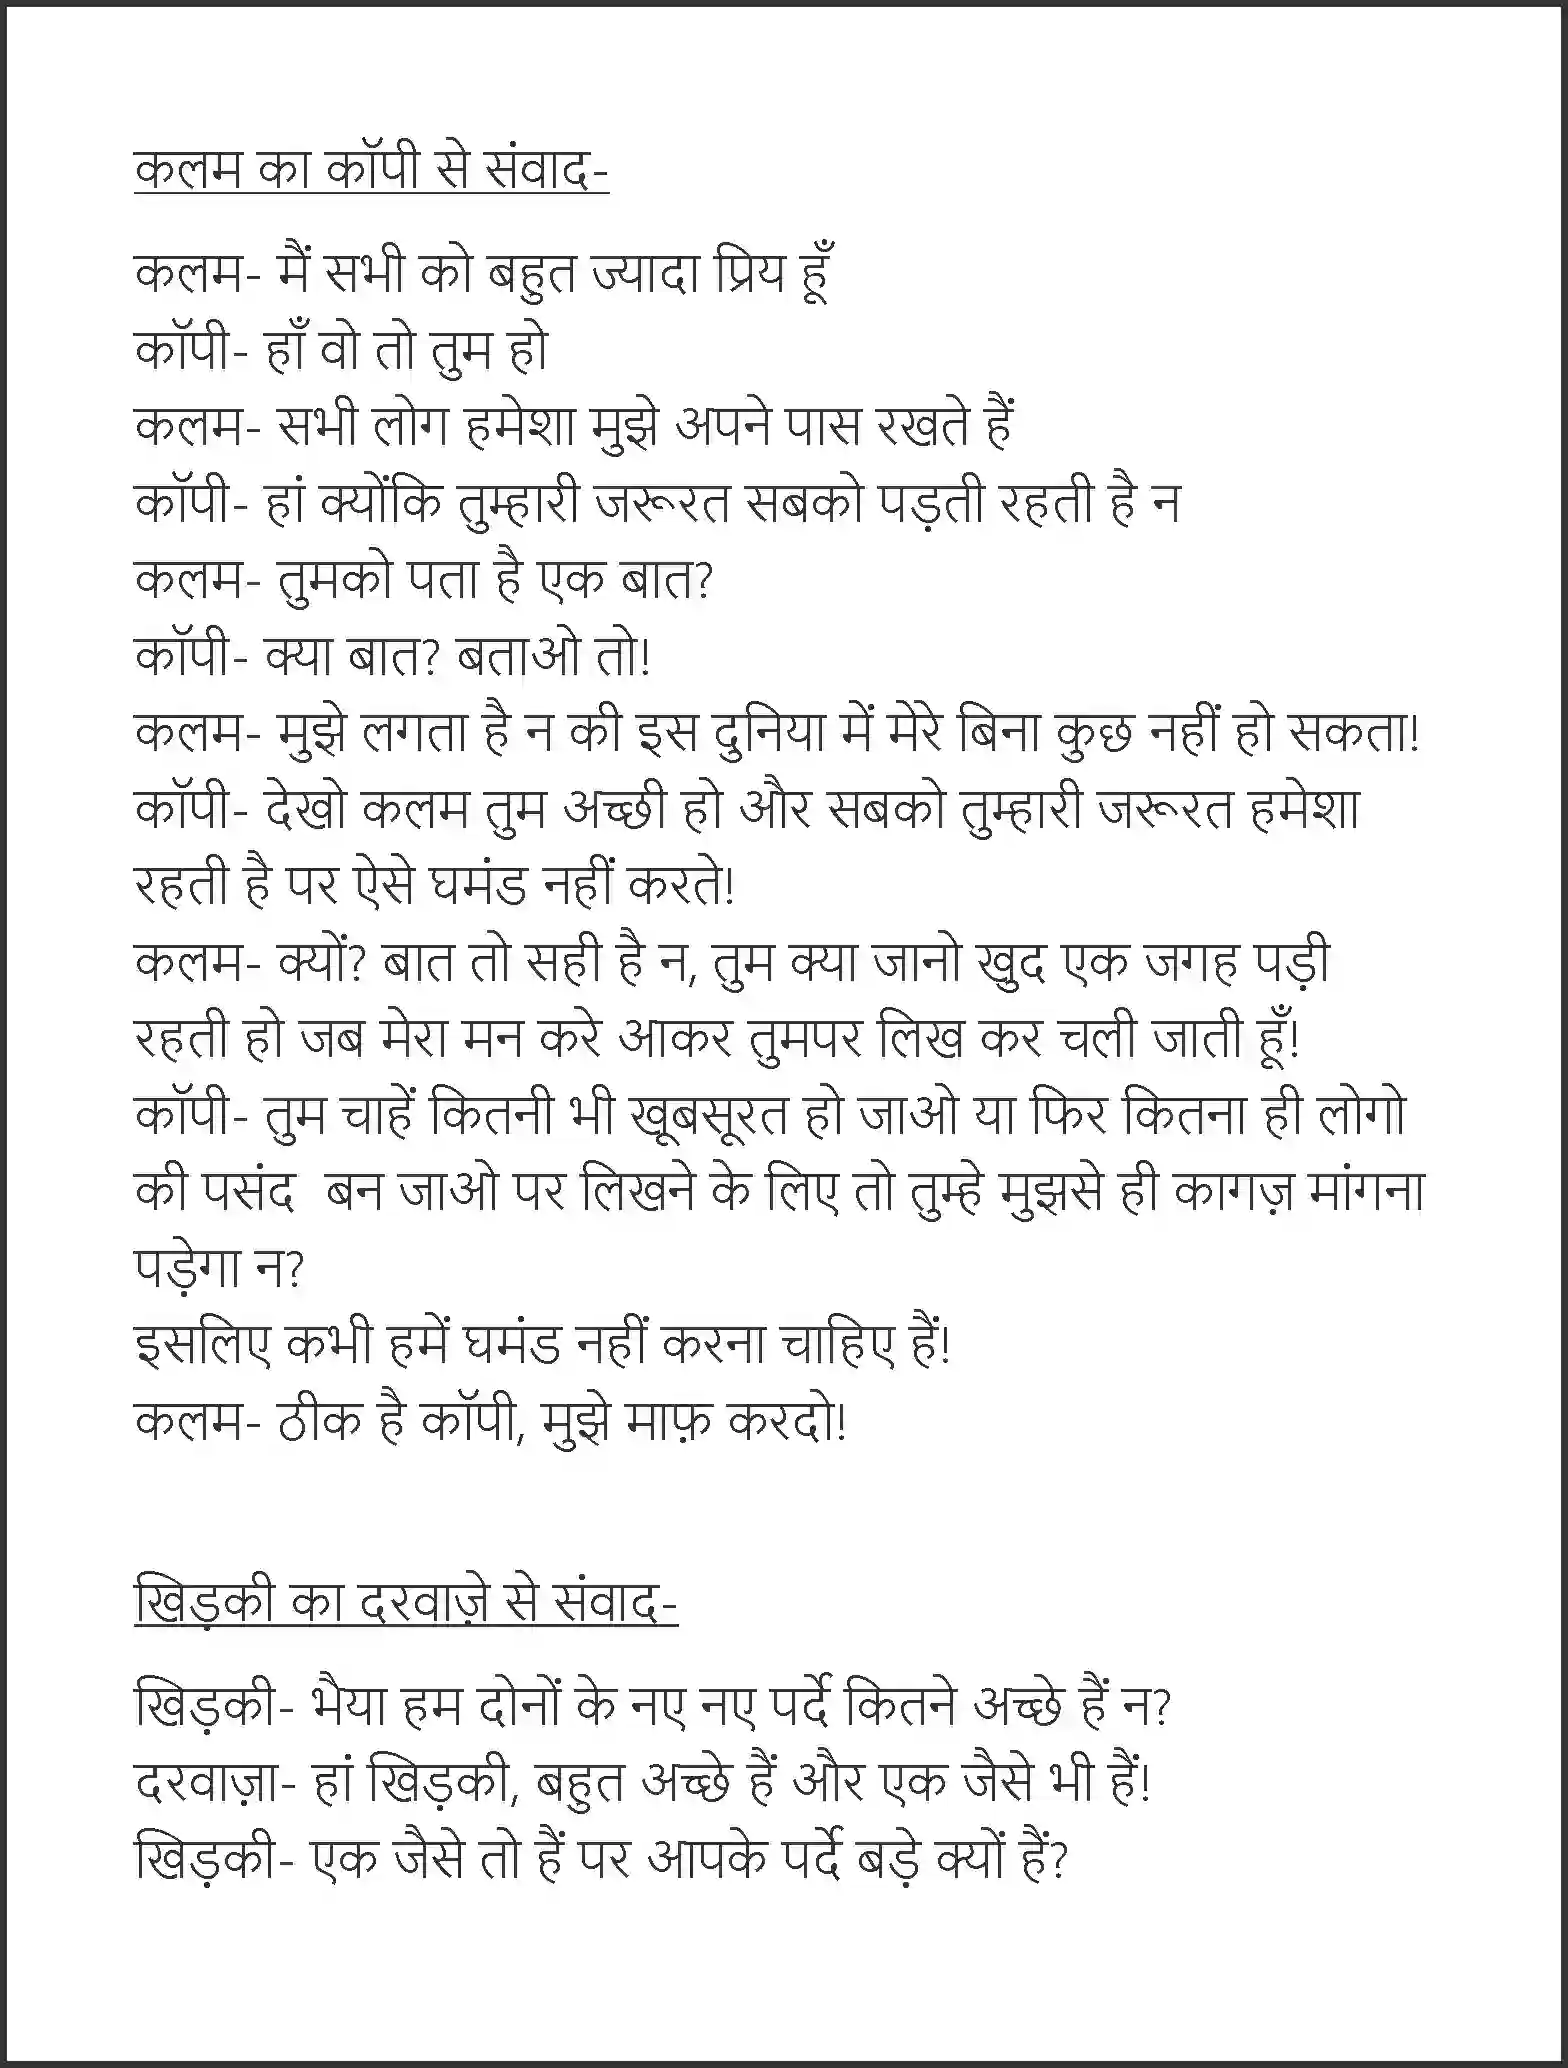 कलम का कॉपी से संवाद-
कलम- मैं सभी को बहुत ज्यादा प्रिय हूँ
कॉपी- हाँ वो तो तुम हो
कलम- सभी लोग हमेशा मुझे अपने पास रखते हैं
कॉपी- हां क्योंकि तुम्हारी जरूरत सबको पड़ती रहती है न
कलम- तुमको पता है एक बात?
कॉपी- क्या बात? बताओ तो!
कलम- मुझे लगता है न की इस दुनिया में मेरे बिना कुछ नहीं हो सकता!
कॉपी- देखो कलम तुम अच्छी हो और सबको तुम्हारी जरूरत हमेशा
रहती है पर ऐसे घमंड नहीं करते!
कलम- क्यों? बात तो सही है न, तुम क्या जानो खुद एक जगह पड़ी
रहती हो जब मेरा मन करे आकर तुमपर लिख कर चली जाती हूँ!
कॉपी- तुम चाहें कितनी भी खूबसूरत हो जाओ या फिर कितना ही लोगो
की पसंद  बन जाओ पर लिखने के लिए तो तुम्हे मुझसे ही कागज़ मांगना
पड़ेगा न?
इसलिए कभी हमें घमंड नहीं करना चाहिए हैं!
कलम- ठीक है कॉपी, मुझे माफ़ करदो!
खिड़की का दरवाज़े से संवाद-
खिड़की- भैया हम दोनों के नए नए पर्दे कितने अच्छे हैं न?
दरवाज़ा- हां खिड़की, बहुत अच्छे हैं और एक जैसे भी हैं!
खिड़की- एक जैसे तो हैं पर आपके पर्दे बड़े क्यों हैं?